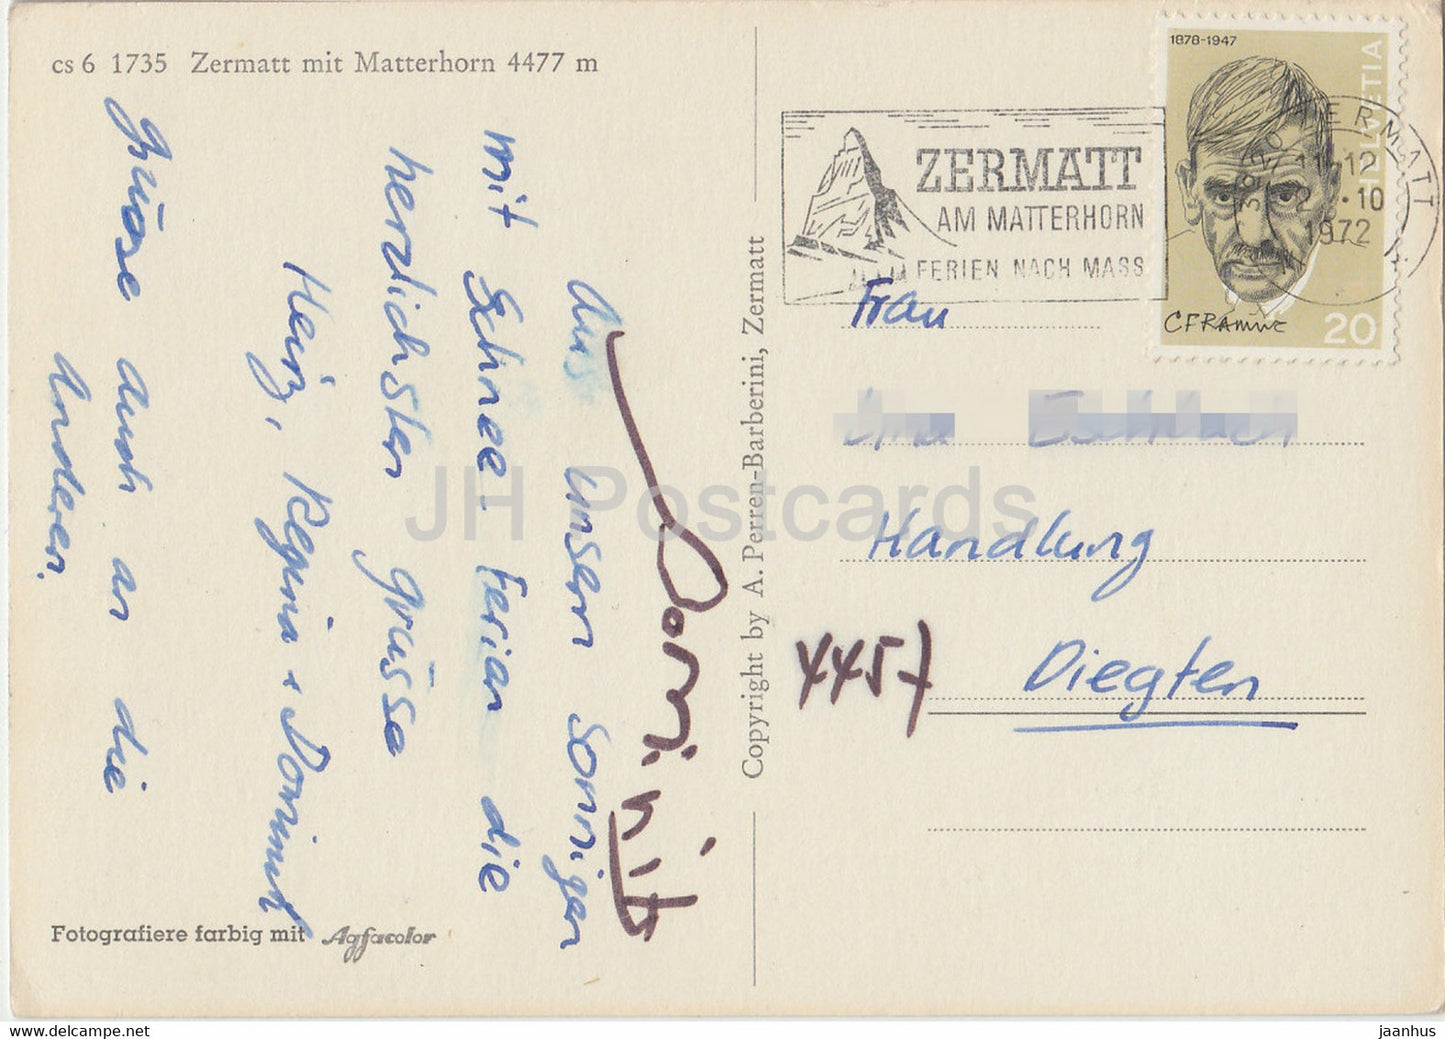 cs 6 1735 Zermatt mit Matterhorn 4477 m
Aus unsern sonnigen
mit Schnee Ferian die
herzlichsten grüsse
Heinz, Regina + Dominik
Grüsse auch an die
Anderen.
Domi.
Fotografiere farbig mit Agfacolor
Copyright by A. Perren-Barberini, Zermatt
ZERMATT
AM MATTERHORN
FERIEN NACH MASS
1878-1947
HELVETIA
CF RAMUZ
20
ZERMATT
11-12
10
1972
Frau
Handlung
4457
Diegten
JH Postcards
www.delcampe.net
jaanhus